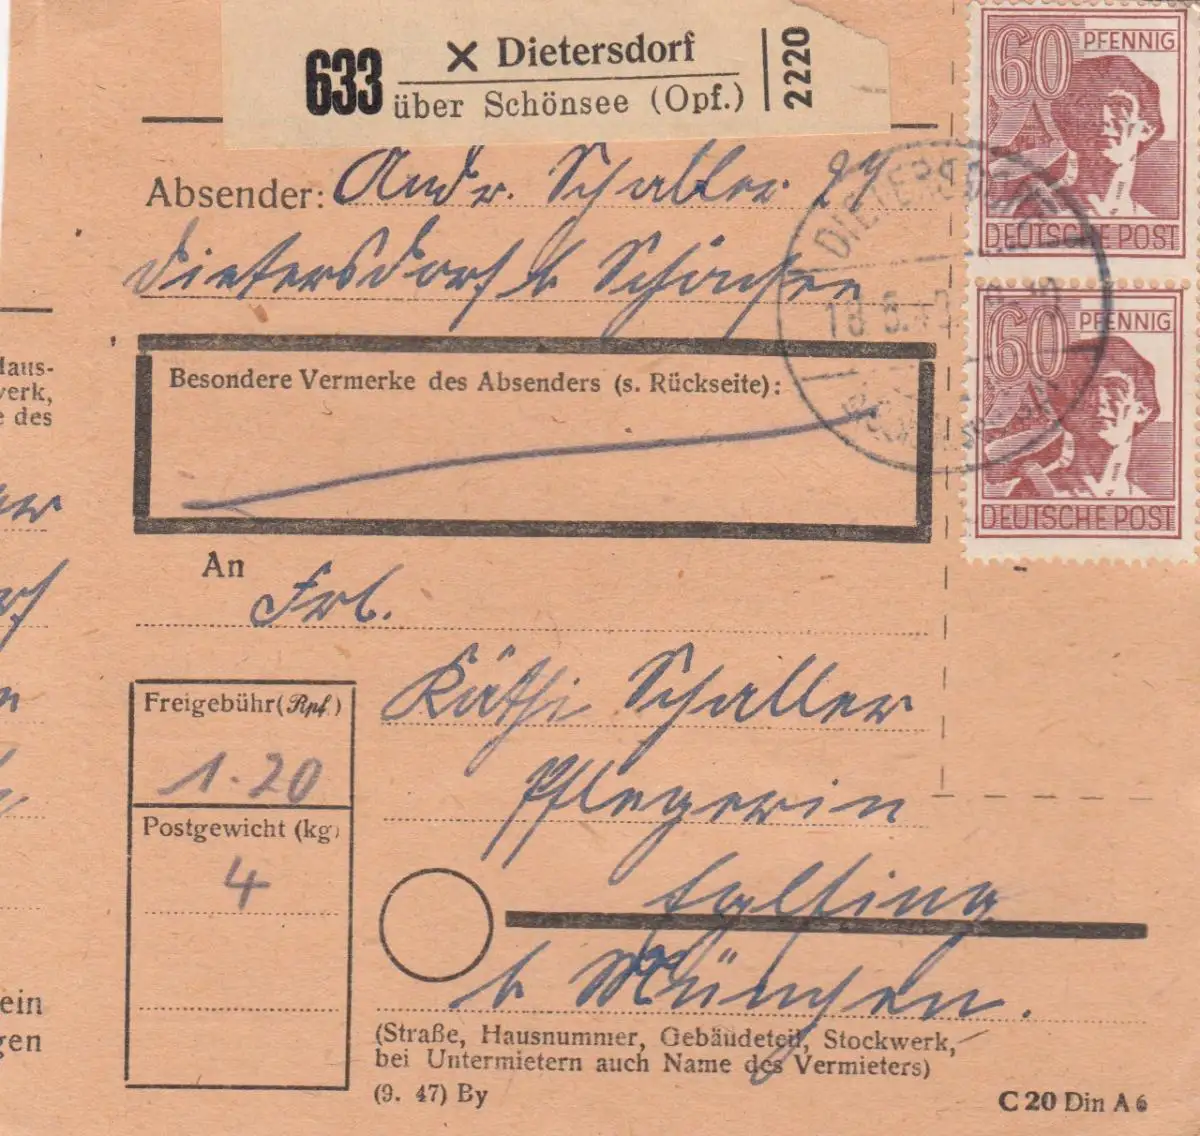 633 × Dietersdorf
über Schönsee (Opf.)
2220
60 PFENNIG
DEUTSCHE POST
60 PFENNIG
DEUTSCHE POST
Absender: Andr. Schaller 29
Dietersdorf b Schönsee
DIETERSDORF
18.5.48
Besondere Vermerke des Absenders (s. Rückseite):
An Frl.
Käthi Schaller
Pflegerin
Eglfing
b München.
Freigebühr (Rpf.)
1.20
Postgewicht (kg)
4
(Straße, Hausnummer, Gebäudeteil, Stockwerk,
bei Untermietern auch Name des Vermieters)
(9. 47) By
C 20 Din A 6
Haus-
werk,
e des
ein
gen